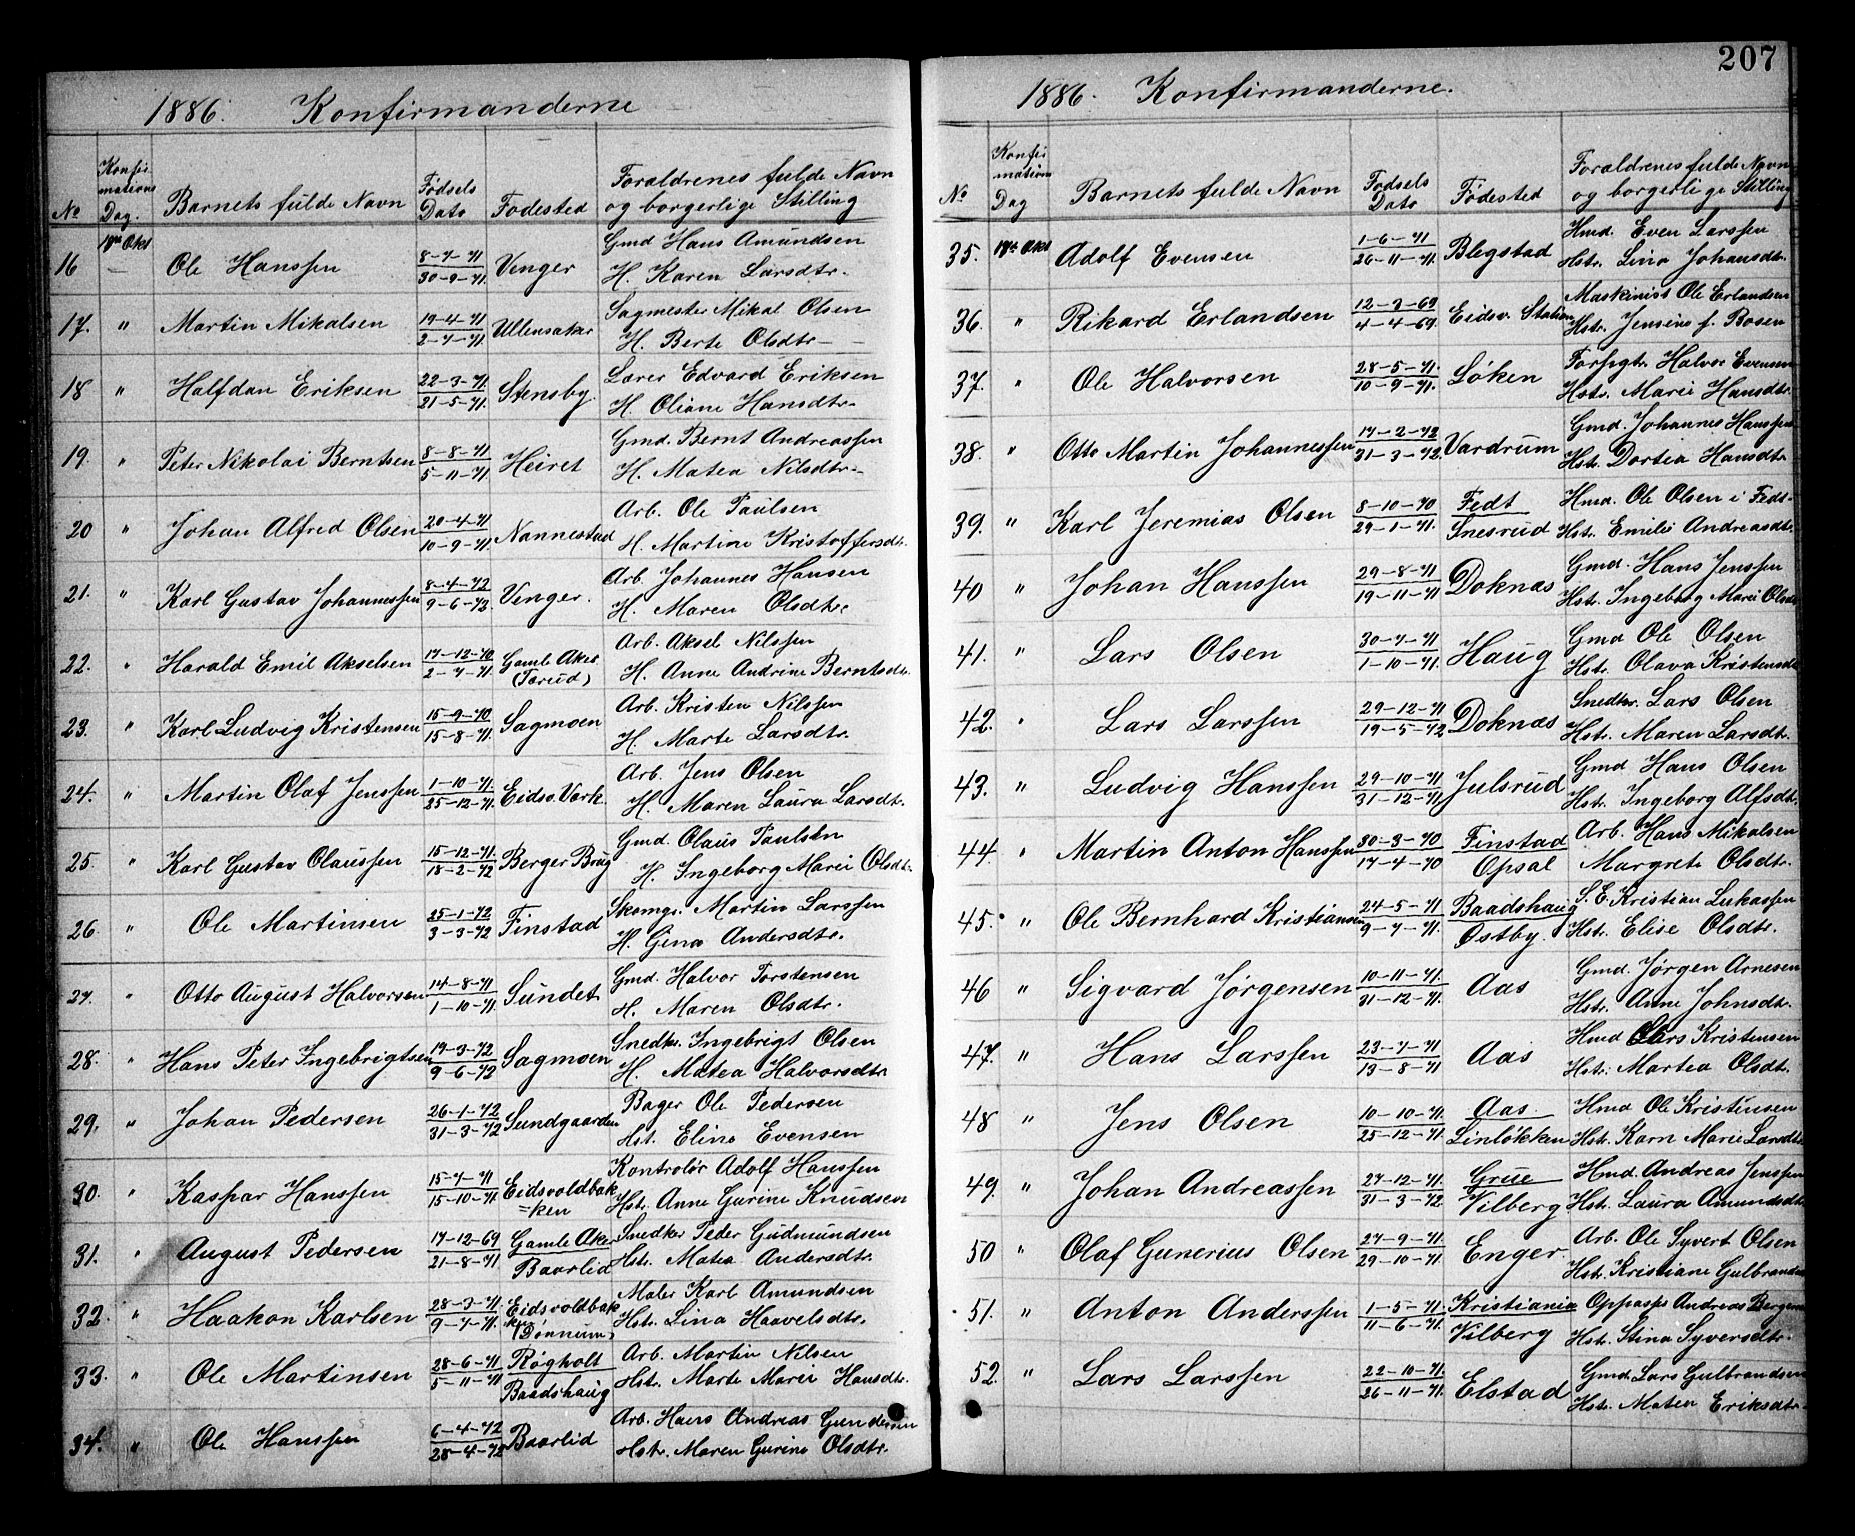 1886. Konfirmanderne
No Konfirmations Dag. Barnets fulde Navn Fødsels Dato Fødested Foraldrenes fulde Navn og borgerlige Stilling
16 Ole Hanssen 8-7-71 30-9-71 Venger Gmd Hans Amundsen
H. Karen Larsdtr.
17. " Martin Mikalsen 19-4-71 2-7-71 Ullensaker Sagmester Mikal Olsen
H. Berte Olsdtr
18 " Halfdan Eriksen 22-3-71. 21-5-71. Stensby. Lærer Edvard Eriksen
H. Oliane Hansdtr
19. " Peter Nikolai Berntsen 8-8-71 5-11-71. Heiret Gmd. Bernt Andreassen
H. Matea Nilsdtr
20 " Johan Alfred Olsen 20-4-71 10-9-71. Nannestad Arb. Ole Paulsen
H. Martine Kristoffersdtr.
21. " Karl Gustav Johannessen 8-4-72 9-6-72 Venger. Arb. Johannes Hansen
H. Maren Olsdtr.
22. " Harald Emil Akselsen 17-12-70 2-7-71. Gamle Aker Arb. Aksel Nilssen
H. Anne Andrine Berntsdtr.
23. " Karl Ludvig Kristensen 15-9-70 15-8-71. Sagmoen Arb. Kristen Nilssen
H. Marte Larsdtr.
24. " Martin Olaf Jenssen 1-10-71. 25-12-71. Eidsv. Værk. Arb. Jens Olsen
H. Maren Laura Larsdtr.
25. " Karl Gustav Olaussen 15-12-71. 18-2-72 Berger Brug Gmd. Olaus Paulsen
H. Ingeborg Marei Olsdtr.
26. " Ole Martinsen 25-1-72 3-3-72 Finstad Skomgr. Martin Larssen
H. Gina Andersdtr.
27. " Otto August Halvorsen 14-8-71 1-10-71. Sundet Gmd. Halvor Torstensen
H. Maren Olsdtr.
28. " Hans Peter Ingebrigtsen 19-3-72 9-6-72 Sagmoen Snedkr. Ingebrigt Olsen
H. Matea Halvorsdtr
29. " Johan Pedersen 26-1-72 31-3-72 Sundgaarden Bager Ole Pedersen
Hst. Elina Evensen
30. " Kaspar Hanssen 15-7-71 15-10-71. Eidsvoldbak=ken Kontrolør Adolf Hanssen
Hst. Anne Gurine Knudsen
31. " August Pedersen 17-12-69 21-8-71 Gamle Aker Baarlid Snedker Peder Gudmundsen
Hst. Matea Andersdtr.
32. " Haakon Karlsen 28-3-71. 9-7-71. Eidsvoldbakken (Dønnum) Maler Karl Amundsen
Hst. Lina Haavelsdtr.
33. " Ole Martinsen 28-6-71 5-11-71 Røgholt Baadshaug Arb. Martin Nilsen
Hstr. Marte Marei Hansdtr.
34. " Ole Hanssen 6-4-72 28-4-72 Baarlid Arb. Hans Andreas Gundersen
Hstr. Maren Gurine Olsdtr.
207
1886. Konfirmanderne.
No Konfirmations Dag Barnets fulde Navn Fødsels Dato Fødested Foraldrenes fulde Navn og borgerlige Stilling
35. Adolf Evensen 1-6-71 26-11-71. Blegstad Hmd. Even Larssen
Hstr. Lina Johansdtr.
36. " Rikard Erlandsen 12-2-69 4-4-69. Eidsv. Station Maskinist Ole Erlandsen
Hstr. Jensine f. Rosen
37. " Ole Halvorsen 28-5-71. 10-9-71. Løken Forpgtr. Halvor Evensen
Hstr. Marei Hansdtr.
38. " Otto Martin Johannessen 17-2-72 31-3-72. Vardrum Gmd. Johannes Hanssen
Hstr. Dortea Hansdtr.
39. " Karl Jeremias Olsen 8-10-70 29-1-71. Fedt Snesrud Hmd. Ole Olsen i Fedt
Hstr. Emilie Andreasdtr.
40 " Johan Hanssen 29-8-71 19-11-71 Doknæs Gmd. Hans Jenssen
Hstr. Ingeborg Marei Olsdtr
41. " Lars Olsen 30-7-71 1-10-71. Haug Gmd Ole Olsen
Hstr. Olava Kristensdtr
42. " Lars Larssen 29-12-71 19-5-72 Doknæs Snedkr. Lars Olsen
Hstr. Maren Larsdtr.
43. " Ludvig Hanssen 29-10-71 31-12-71. Julsrud Gmd Hans Olsen
Hstr. Ingeborg Alfsdtr.
44. " Martin Anton Hanssen 30-3-70 17-4-70 Finstad Opsal Arb. Hans Mikalsen
Margrete Olsdtr.
45. " Ole Bernhard Kristiansen 24-5-71 9-7-71. Baadshaug Østby. S. E. Kristian Lukassen
Hstr. Elise Olsdtr.
46 " Sigvard Jørgensen 10-11-71. 31-12-71. Aas Gmd. Jørgen Arnesen
Hstr. Anne Johnsdtr.
47. " Hans Larssen 23-7-71 13-8-71 Aas Hmd Lars Kristensen
Hstr. Martea Olsdtr.
48 " Jens Olsen 10-10-71. 25-12-71. Aas Linløkken Hmd Ole Kristensen
Hstr. Karn Marei Larsdtr
49. " Johan Andreassen 27-12-71. 31-3-72. Grue Vilberg Hmd. Andreas Jenssen
Hstr. Laura Amundsdtr
50 " Olaf Gunerius Olsen 27-9-71. 29-10-71. Enger. Arb. Ole Syvert Olsen
Hstr. Kristiane Gulbrandsen
51. " Anton Anderssen 1-5-71. 11-6-71. Kristiania Vilberg Oppasser Andreas Bergersen
Hstr. Stina Syversdtr.
52. " Lars Larssen 22-10-71. 26-11-71. Elstad Gmd. Lars Gulbrandsen
Hstr. Matea Eriksdtr.